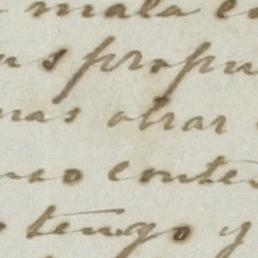 mala
propu
mas otras
conte
tengo y